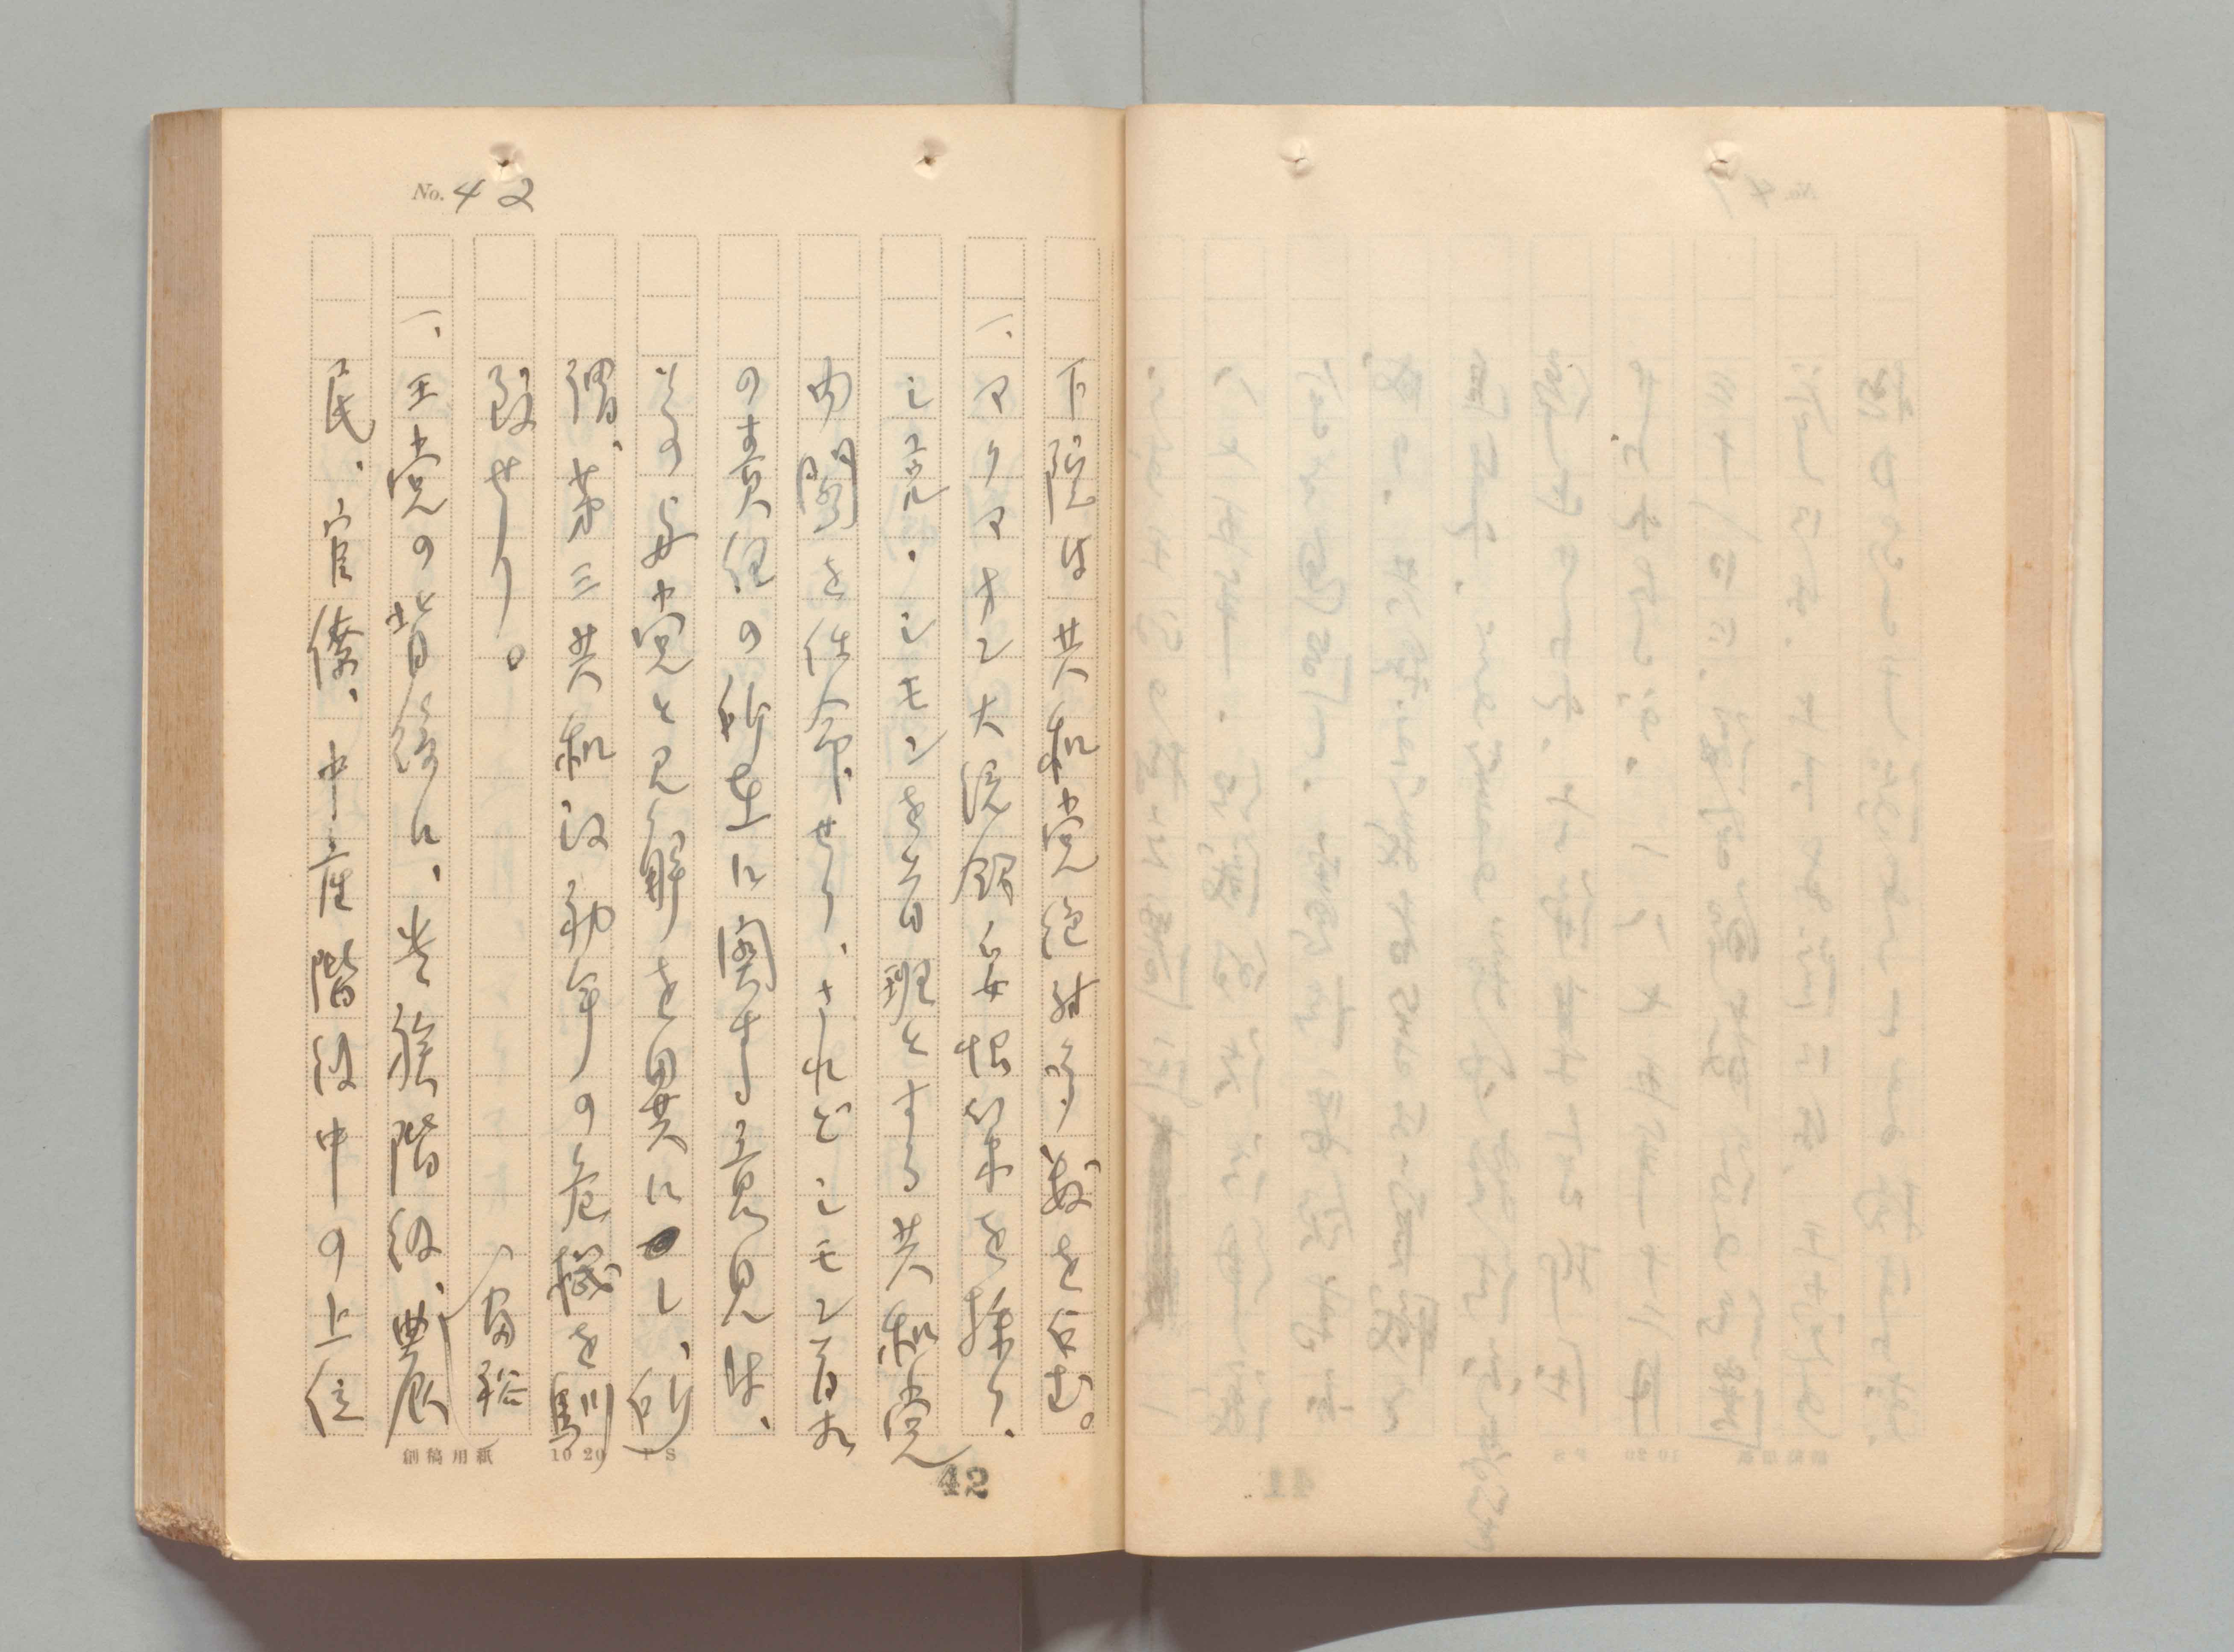 No. 42
下院は共和党絶対多数を占む。
一、マクマオン大統領妥協策を採り、
・シモンを首班とする共和党
内閣を任命せり、されどシモン首相
の責任の所在に関する意見は、
その与党と見解を異にし、所
謂、第三共和政初年の危機を馴
致せり。
富裕
一、王党の背後に、貴族階級、農
民、官僚、中産階級中の上位
創稿用紙 10 20 P S
42